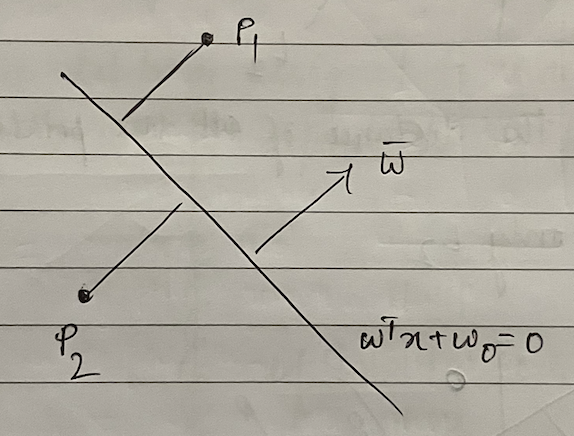 P₁
w̅
P₂
wᵀx+w₀=0